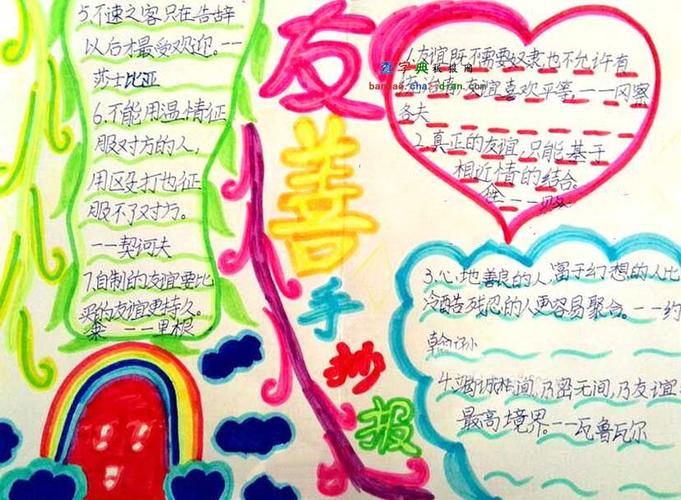 友
善
手
抄
报
1.友谊既不需要奴隶也不允许有
友谊喜欢平等。——冈察
各夫
2.真正的友谊,只能基于
相近情的结合。
3.心地善良的人,富于幻想的人比
冷酷残忍的人更容易聚合。——约
翰逊
4.竭诚相间,乃密无间,乃友谊
最高境界。——瓦鲁瓦尔
5.不速之客只在告辞
以后才最受欢迎。——
莎士比亚
6.不能用温情征
服对方的人,
用殴打也征
服不了对方。
——契诃夫
7.自制的友谊要比
买的友谊更持久。
——里根